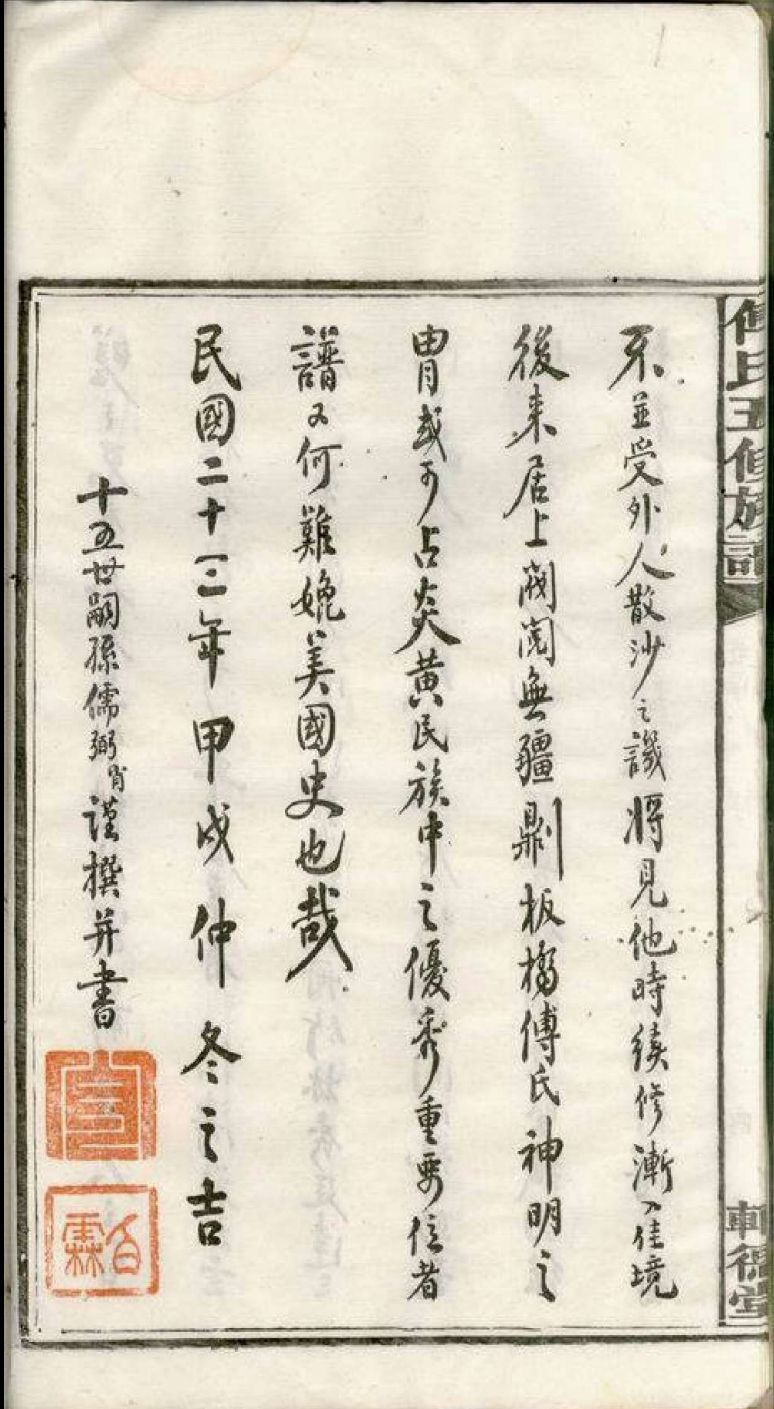 傅氏五修族譜
不並受外人散沙之譏將見他時續修漸入佳境
後來居上閥閱無疆剿板橋傅氏神明之
胄或可占炎黃民族中之優秀重要位者
譜又何難媲美國史也哉
民國二十三年甲戌仲冬之吉
十五世嗣孫儒弼肖謹撰并書
百霖